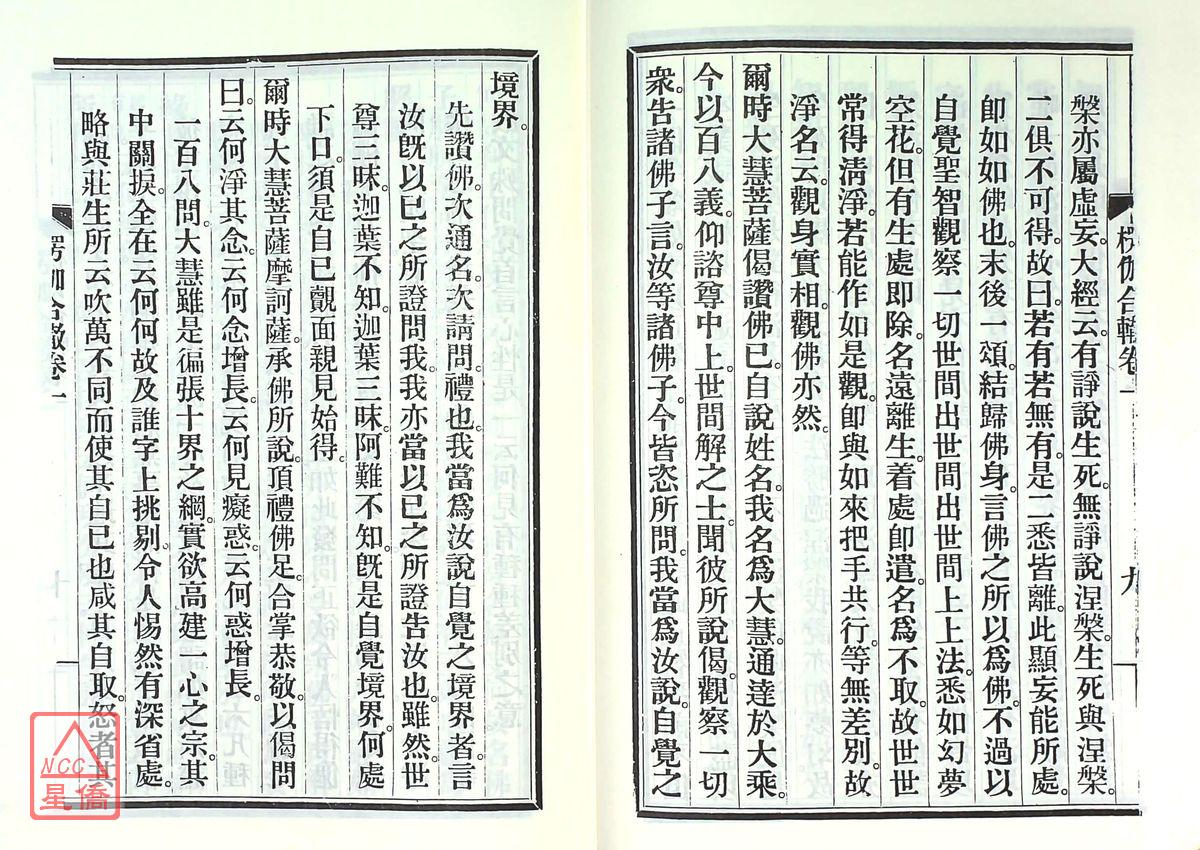 槃亦屬虛妄。大經云。有諍說生死。無諍說涅槃。生死與涅槃。
二俱不可得。故曰。若有若無有。是二悉皆離。此顯妄能所處。
卽如如佛也。末後一頌。結歸佛身。言佛之所以爲佛。不過以
自覺聖智觀察一切世間出世間出世間上上法。悉如幻夢
空花。但有生處卽除。名遠離生。着處卽遣。名爲不取。故世世
常得清淨。若能作如是觀。卽與如來把手共行。等無差別。故
淨名云。觀身實相。觀佛亦然。
爾時大慧菩薩偈讚佛已。自說姓名。我名爲大慧。通達於大乘。
今以百八義。仰諮尊中上。世間解之士。聞彼所說偈。觀察一切
衆。告諸佛子言。汝等諸佛子。今皆恣所問。我當爲汝說。自覺之
楞伽合轍卷一
九
境界。
先讚佛。次通名。次請問。禮也。我當爲汝說自覺之境界者。言
汝旣以已之所證問我。我亦當以已之所證告汝也。雖然。世
尊三昧。迦葉不知。迦葉三昧。阿難不知。旣是自覺境界。何處
下口。須是自已覿面親見始得。
爾時大慧菩薩摩訶薩。承佛所說。頂禮佛足。合掌恭敬。以偈問
曰。云何淨其念。云何念增長。云何見癡惑。云何惑增長。
一百八問。大慧雖是徧張十界之綱。實欲高建一心之宗。其
中關捩。全在云何何故及誰字上挑剔。令人惕然有深省處。
略與莊生所云吹萬不同而使其自已也咸其自取。怒者其
楞伽合轍卷一
NCC
星僑